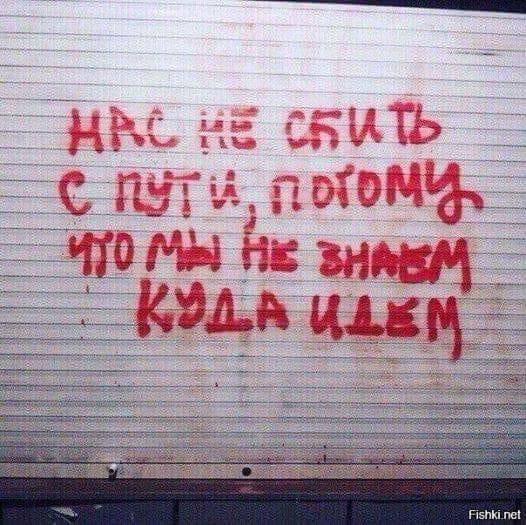 НАС НЕ СБИТЬ
С ПУТИ, ПОТОМУ
ЧТО МЫ НЕ ЗНАЕМ
КУДА ИДЕМ
Fishki.net